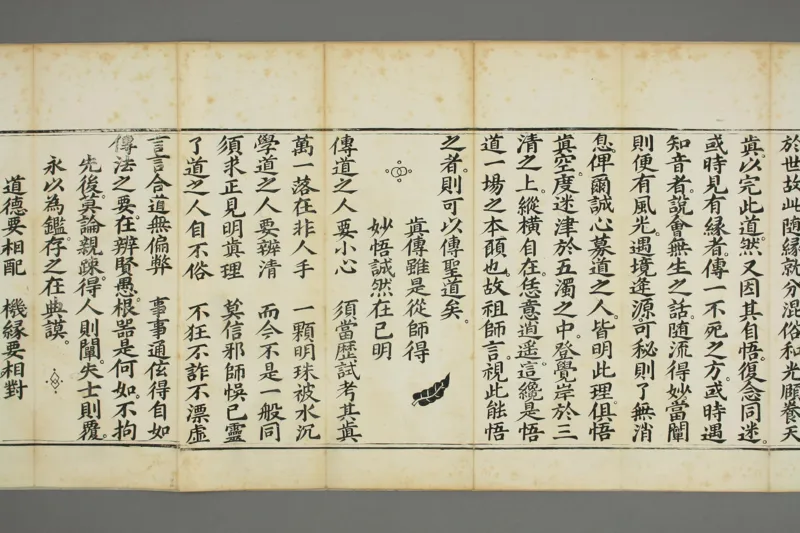 於世故此隨緣就分混俗和光頤養天
眞。以完此道。然又因其自悟。復念同迷。
或時見有緣者。傳一不死之方。或時遇
知音者。說會無生之話。隨流得妙當闡
則便有風光。遇境逢源可秘則了無消
息。俾爾誠心慕道之人。皆明此理。俱悟
眞空。度迷津於五濁之中。登覺岸於三
清之上。縱橫自在。恁意逍遙。這纔是悟
道一場之本頭也。故祖師言。視此能悟
之者。則可以傳聖道矣。
眞傳雖是從師得
妙悟誠然在已明
傳道之人要小心 須當歷試考其眞
萬一落在非人手 一顆明珠被水沉
學道之人要辨清 而今不是一般同
須求正見明眞理 莫信邪師悞已靈
了道之人自不俗 不狂不詐不漂虛
言言合道無偏弊 事事通佐得自如
傳法之要。在辨賢愚。根器是何如。不拘
先後。莫論親疎。得人則闡。失士則覆。
永以為鑑。存之在典謨。
道德要相配 機緣要相對